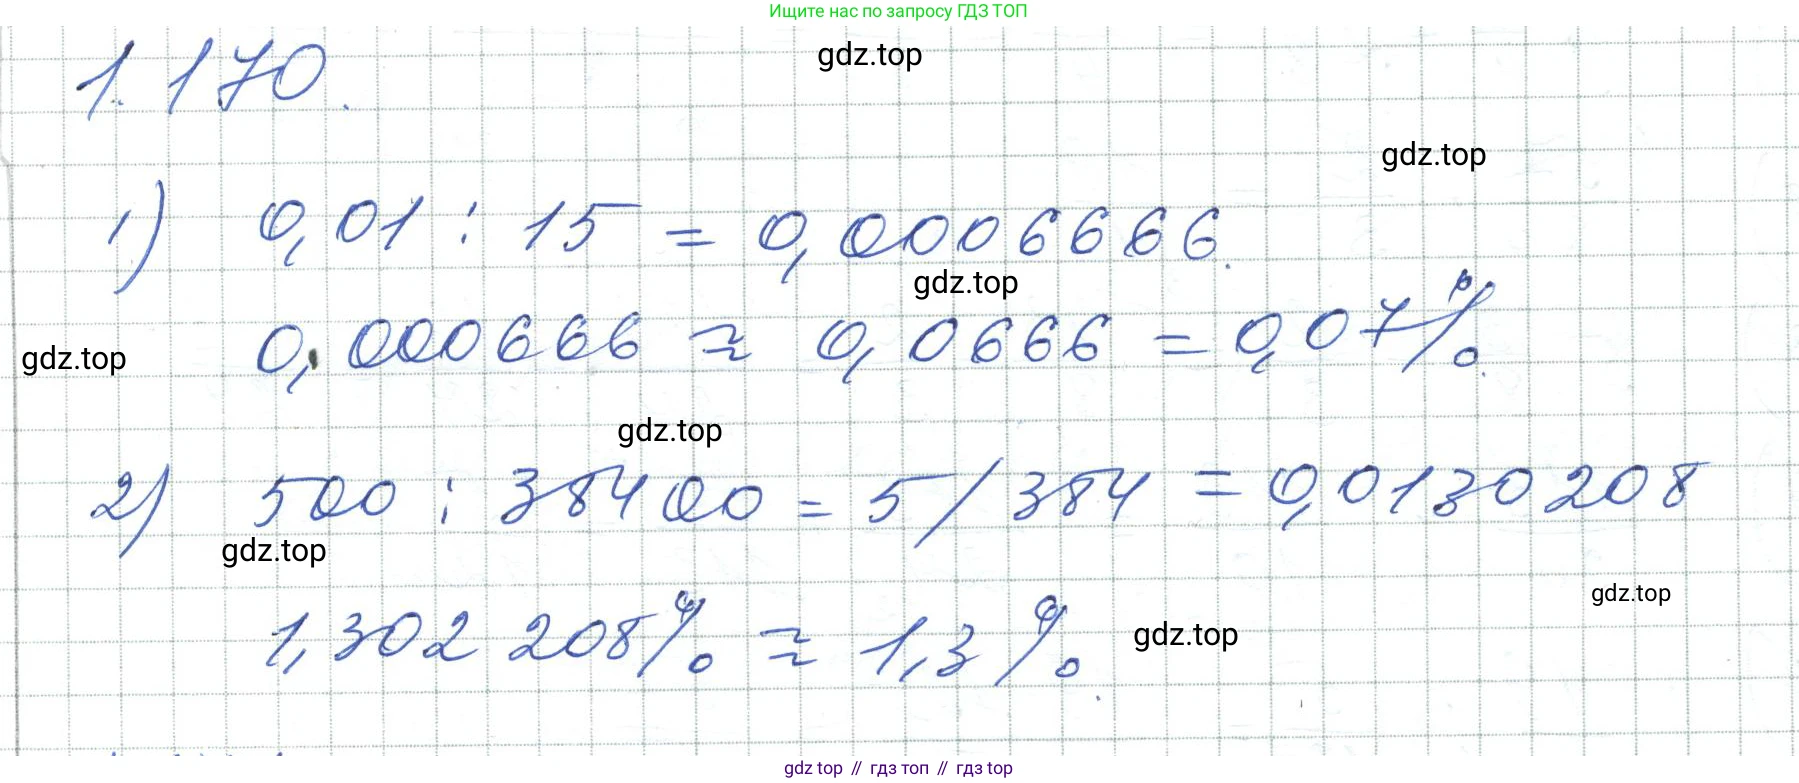 Ищите нас по запросу ГДЗ ТОП
1.170.
gdz.top
gdz.top
1) 0,01 : 15 = 0,0006666.
gdz.top
0,000666 ≈ 0,0666 = 0,07%.
gdz.top
gdz.top
2) 500 : 38400 = 5/384 = 0,0130208
gdz.top
gdz.top
1,302 208% ≈ 1,3%.
gdz.top
gdz top // гдз топ // гдз top